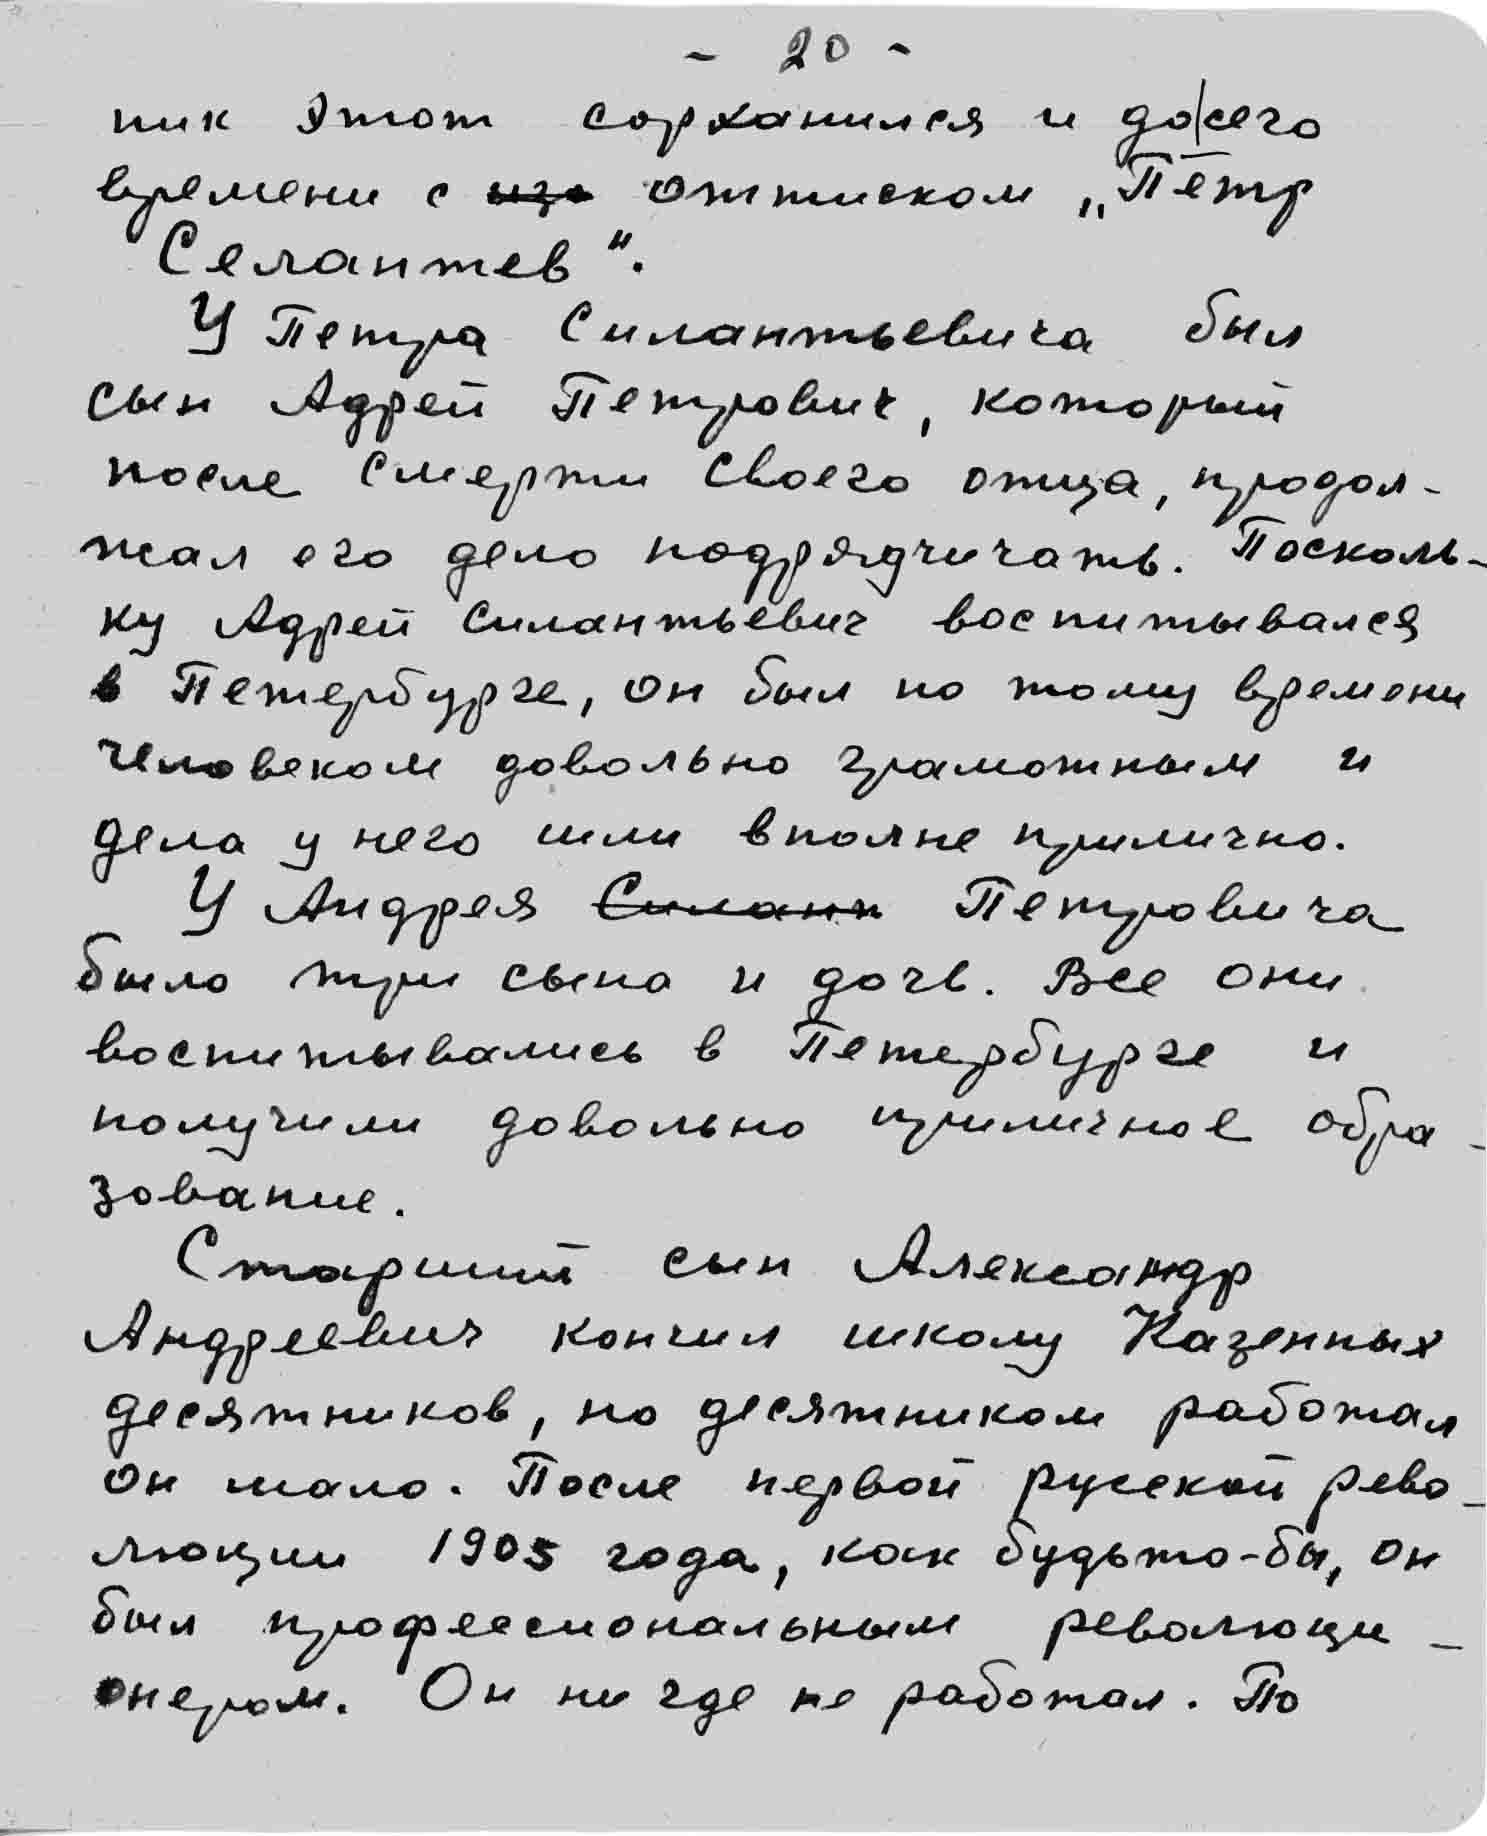 - 20 -
ник этот сорханился и до|сего
времени с его оттиском „Пётр
Селантев".
У Петра Силантьевича был
сын Адрей Петрович, который
после смерти своего отца, продол-
жал его дело подрядчичать. Посколь-
ку Адрей Силантьевич воспитывался
в Петербурге, он был по тому времени
человеком довольно грамотным и
дела у него шли вполне прилично.
У Андрея Силант Петровича
было три сына и дочь. Все они
воспитывались в Петербурге и
получили довольно приличное обра-
зование.
Старший сын Александр
Андреевич кончил школу Казенных
десятников, но десятником работал
он мало. После первой русской рево-
люции 1905 года, как будьто-бы, он
был профессиональным революци-
онером. Он ни где не работал. По